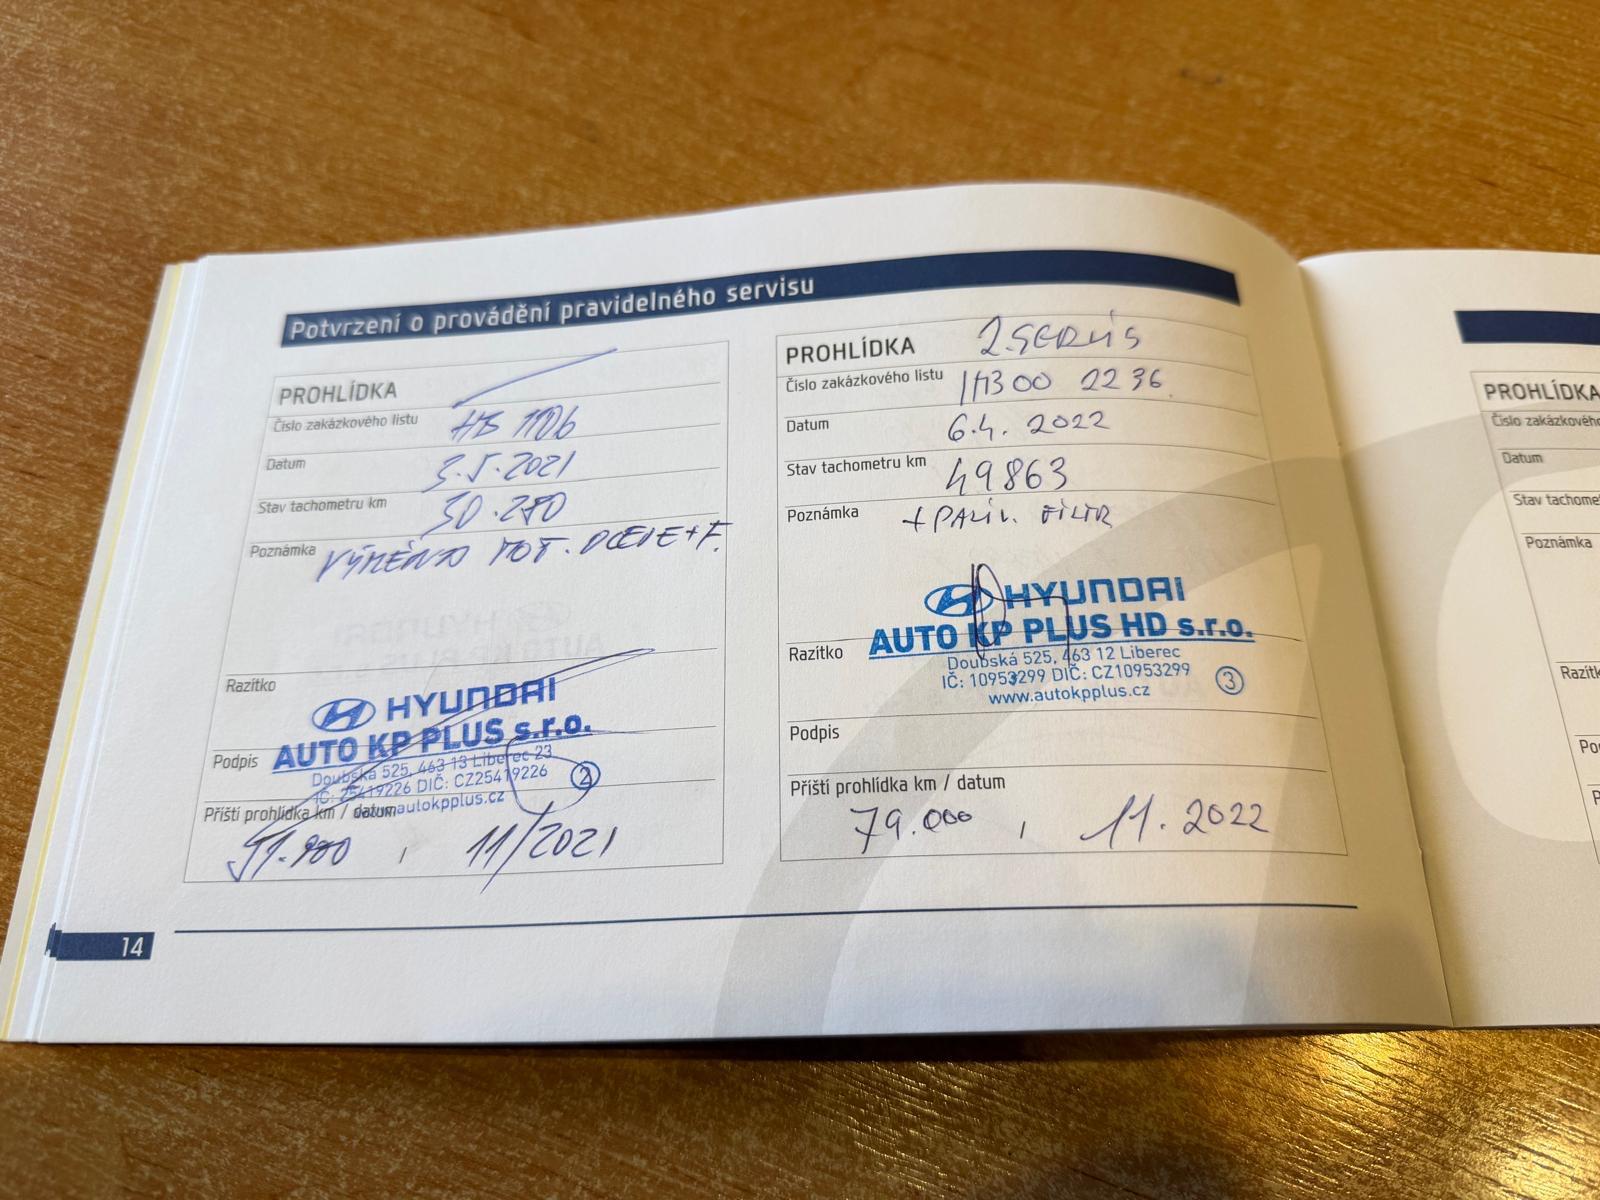 Potvrzení o provádění pravidelného servisu
PROHLÍDKA
Číslo zakázkového listu HB 1106
Datum 3.5.2021
Stav tachometru km 30.280
Poznámka VÝMĚNA MOT. OLEJE + F.
Razítko
HYUNDAI
AUTO KP PLUS s.r.o.
Doubská 525, 463 13 Liberec 23
IČ: 25419226 DIČ: CZ25419226 2
Podpis
www.autokpplus.cz
Příští prohlídka km / datum
11/2021
PROHLÍDKA 2.SERVIS
Číslo zakázkového listu 00 2236
Datum 6.4. 2022
Stav tachometru km 49863
Poznámka + PALIV. FILTR
HYUNDAI
AUTO KP PLUS HD s.r.o.
Razítko
Doubská 525, 463 12 Liberec
IČ: 10953299 DIČ: CZ10953299 3
www.autokpplus.cz
Podpis
Příští prohlídka km / datum
79.000 , 11. 2022
14
PROHLÍDKA
Číslo zakázkovéh
Datum
Stav tachome
Poznámka
Razítk
Po
P